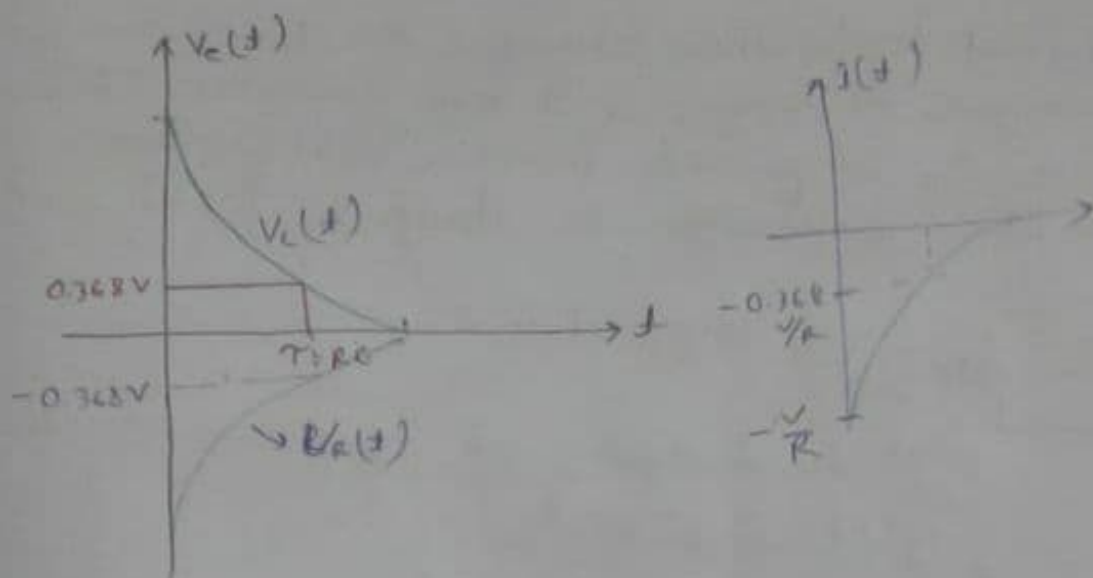 Vc(t)
Vc(t)
0.368V
t
T=RC
-0.368V
VR(t)
i(t)
-0.368
V/R
-V/R